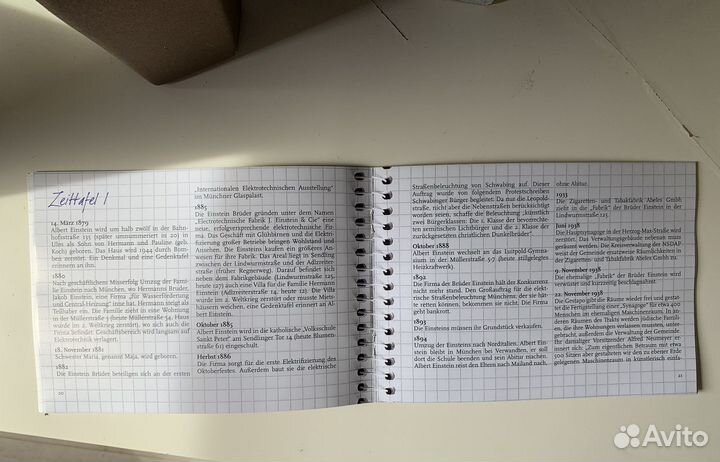 Zeittafel I
14. März 1879
Albert Einstein wird um halb zwölf in der Bahn-
hofstraße 135 (später umnummeriert in 20) in
Ulm als Sohn von Hermann und Pauline (geb.
Koch) geboren. Das Haus wird 1944 durch Bom-
ben zerstört. Ein Denkmal und eine Gedenktafel
erinnern an ihn.
1880
Nach geschäftlichem Misserfolg Umzug der Fami-
lie Einstein nach München, wo Hermanns Bruder,
Jakob Einstein, eine Firma „für Wasserförderung
und Central-Heizung" inne hat. Hermann steigt als
Teilhaber ein. Die Familie zieht in eine Wohnung
in der Müllerstraße 3 (heute Müllerstraße 14, Haus
wurde im 2. Weltkrieg zerstört), wo sich auch die
Firma befindet. Geschäftsbereich wird langsam auf
Elektrotechnik verlagert.
18. November 1881
Schwester Maria, genannt Maja, wird geboren.
1882
Die Einstein Brüder beteiligen sich an der ersten
20
„Internationalen Elektrotechnischen Ausstellung"
im Münchner Glaspalast.
1885
Die Einstein Brüder gründen unter dem Namen
„Electrotechnische Fabrik J. Einstein & Cie" eine
neue, erfolgversprechende elektrotechnische Fir-
ma. Das Geschäft mit Glühbirnen und die Elektri-
fizierung großer Betriebe bringen Wohlstand und
Ansehen. Die Einsteins kaufen ein größeres An-
wesen für ihre Fabrik. Das Areal liegt in Sendling
zwischen der Lindwurmstraße und der Adlzreiter-
straße (früher Regnerweg). Darauf befindet sich
neben dem Fabrikgebäude (Lindwurmstraße 125,
heute 127) auch eine Villa für die Familie Hermann
Einstein (Adlzreiterstraße 14, heute 12). Die Villa
wurde im 2. Weltkrieg zerstört oder musste Miets-
häusern weichen, eine Gedenktafel erinnert an Al-
bert Einstein.
Oktober 1885
Albert Einstein wird in die katholische „Volksschule
Sankt Peter" am Sendlinger Tor 14 (heute Blumen-
straße 61) eingeschult.
Herbst 1886
Die Firma sorgt für die erste Elektrifizierung des
Oktoberfestes. Außerdem baut sie die elektrische
Straßenbeleuchtung von Schwabing auf. Dieser
Auftrag wurde von folgendem Protestschreiben
Schwabinger Bürger begleitet: Da nur die Leopold-
straße, nicht aber die Nebenstraßen berücksichtigt
worden seien, schaffe die Beleuchtung „künstlich
zwei Bürgerklassen: Die 1. Klasse der bevorrech-
ten semitischen Lichtbürger und die 2. Klasse der
zurückgesetzten christlichen Dunkelbrüder".
Oktober 1888
Albert Einstein wechselt an das Luitpold-Gymna-
sium in der Müllerstraße 5-7 (heute stillgelegtes
Heizkraftwerk).
1892
Die Firma der Brüder Einstein hält der Konkurrenz
nicht mehr stand. Den Großauftrag für die elekt-
rische Straßenbeleuchtung Münchner, der sie hät-
te retten können, bekommen sie nicht. Die Firma
geht bankrott.
1893
Die Einsteins müssen ihr Grundstück verkaufen.
1894
Umzug der Einsteins nach Norditalien. Albert Ein-
stein bleibt in München bei Verwandten, er soll
dort die Schule beenden und sein Abitur machen.
Albert Einstein reist den Eltern nach Mailand nach,
ohne Abitur.
1933
Die Zigaretten- und Tabakfabrik Abeles GmbH
zieht in die „Fabrik" der Brüder Einstein in der
Lindwurmstrasse 125.
Juni 1938
Die Hauptsynagoge in der Herzog-Max-Straße wird
zerstört. Das Verwaltungsgebäude nebenan muss
geräumt werden. Die Kreisverwaltung der NSDAP
weist der Gemeinde ersatzweise Räumlichkeiten in
der Zigaretten- und Tabakfabrik Abeles GmbH zu.
9. November 1938
Die ehemalige „Fabrik" der Brüder Einstein wird
verwüstet und kurzzeitig beschlagnahmt.
22. November 1938
Die Gestapo gibt die Räume wieder frei und gestat-
tet die Fertigstellung einer „Synagoge" für etwa 400
Menschen im ehemaligen Maschinenraum. In an-
deren Räumen des Trakts werden jüdische Famili-
en, die ihre Wohnungen verlassen mussten, unter-
gebracht, außerdem die Verwaltung der Gemeinde.
Ihr damaliger Vorsitzender Alfred Neumeyer er-
innert sich: „Zum eigentlichen Betraum mit etwa
500 Sitzen aber gestalteten wir den zu ebener Erde
gelegenen Maschinenraum in künstlerisch einfa-
21
Avito